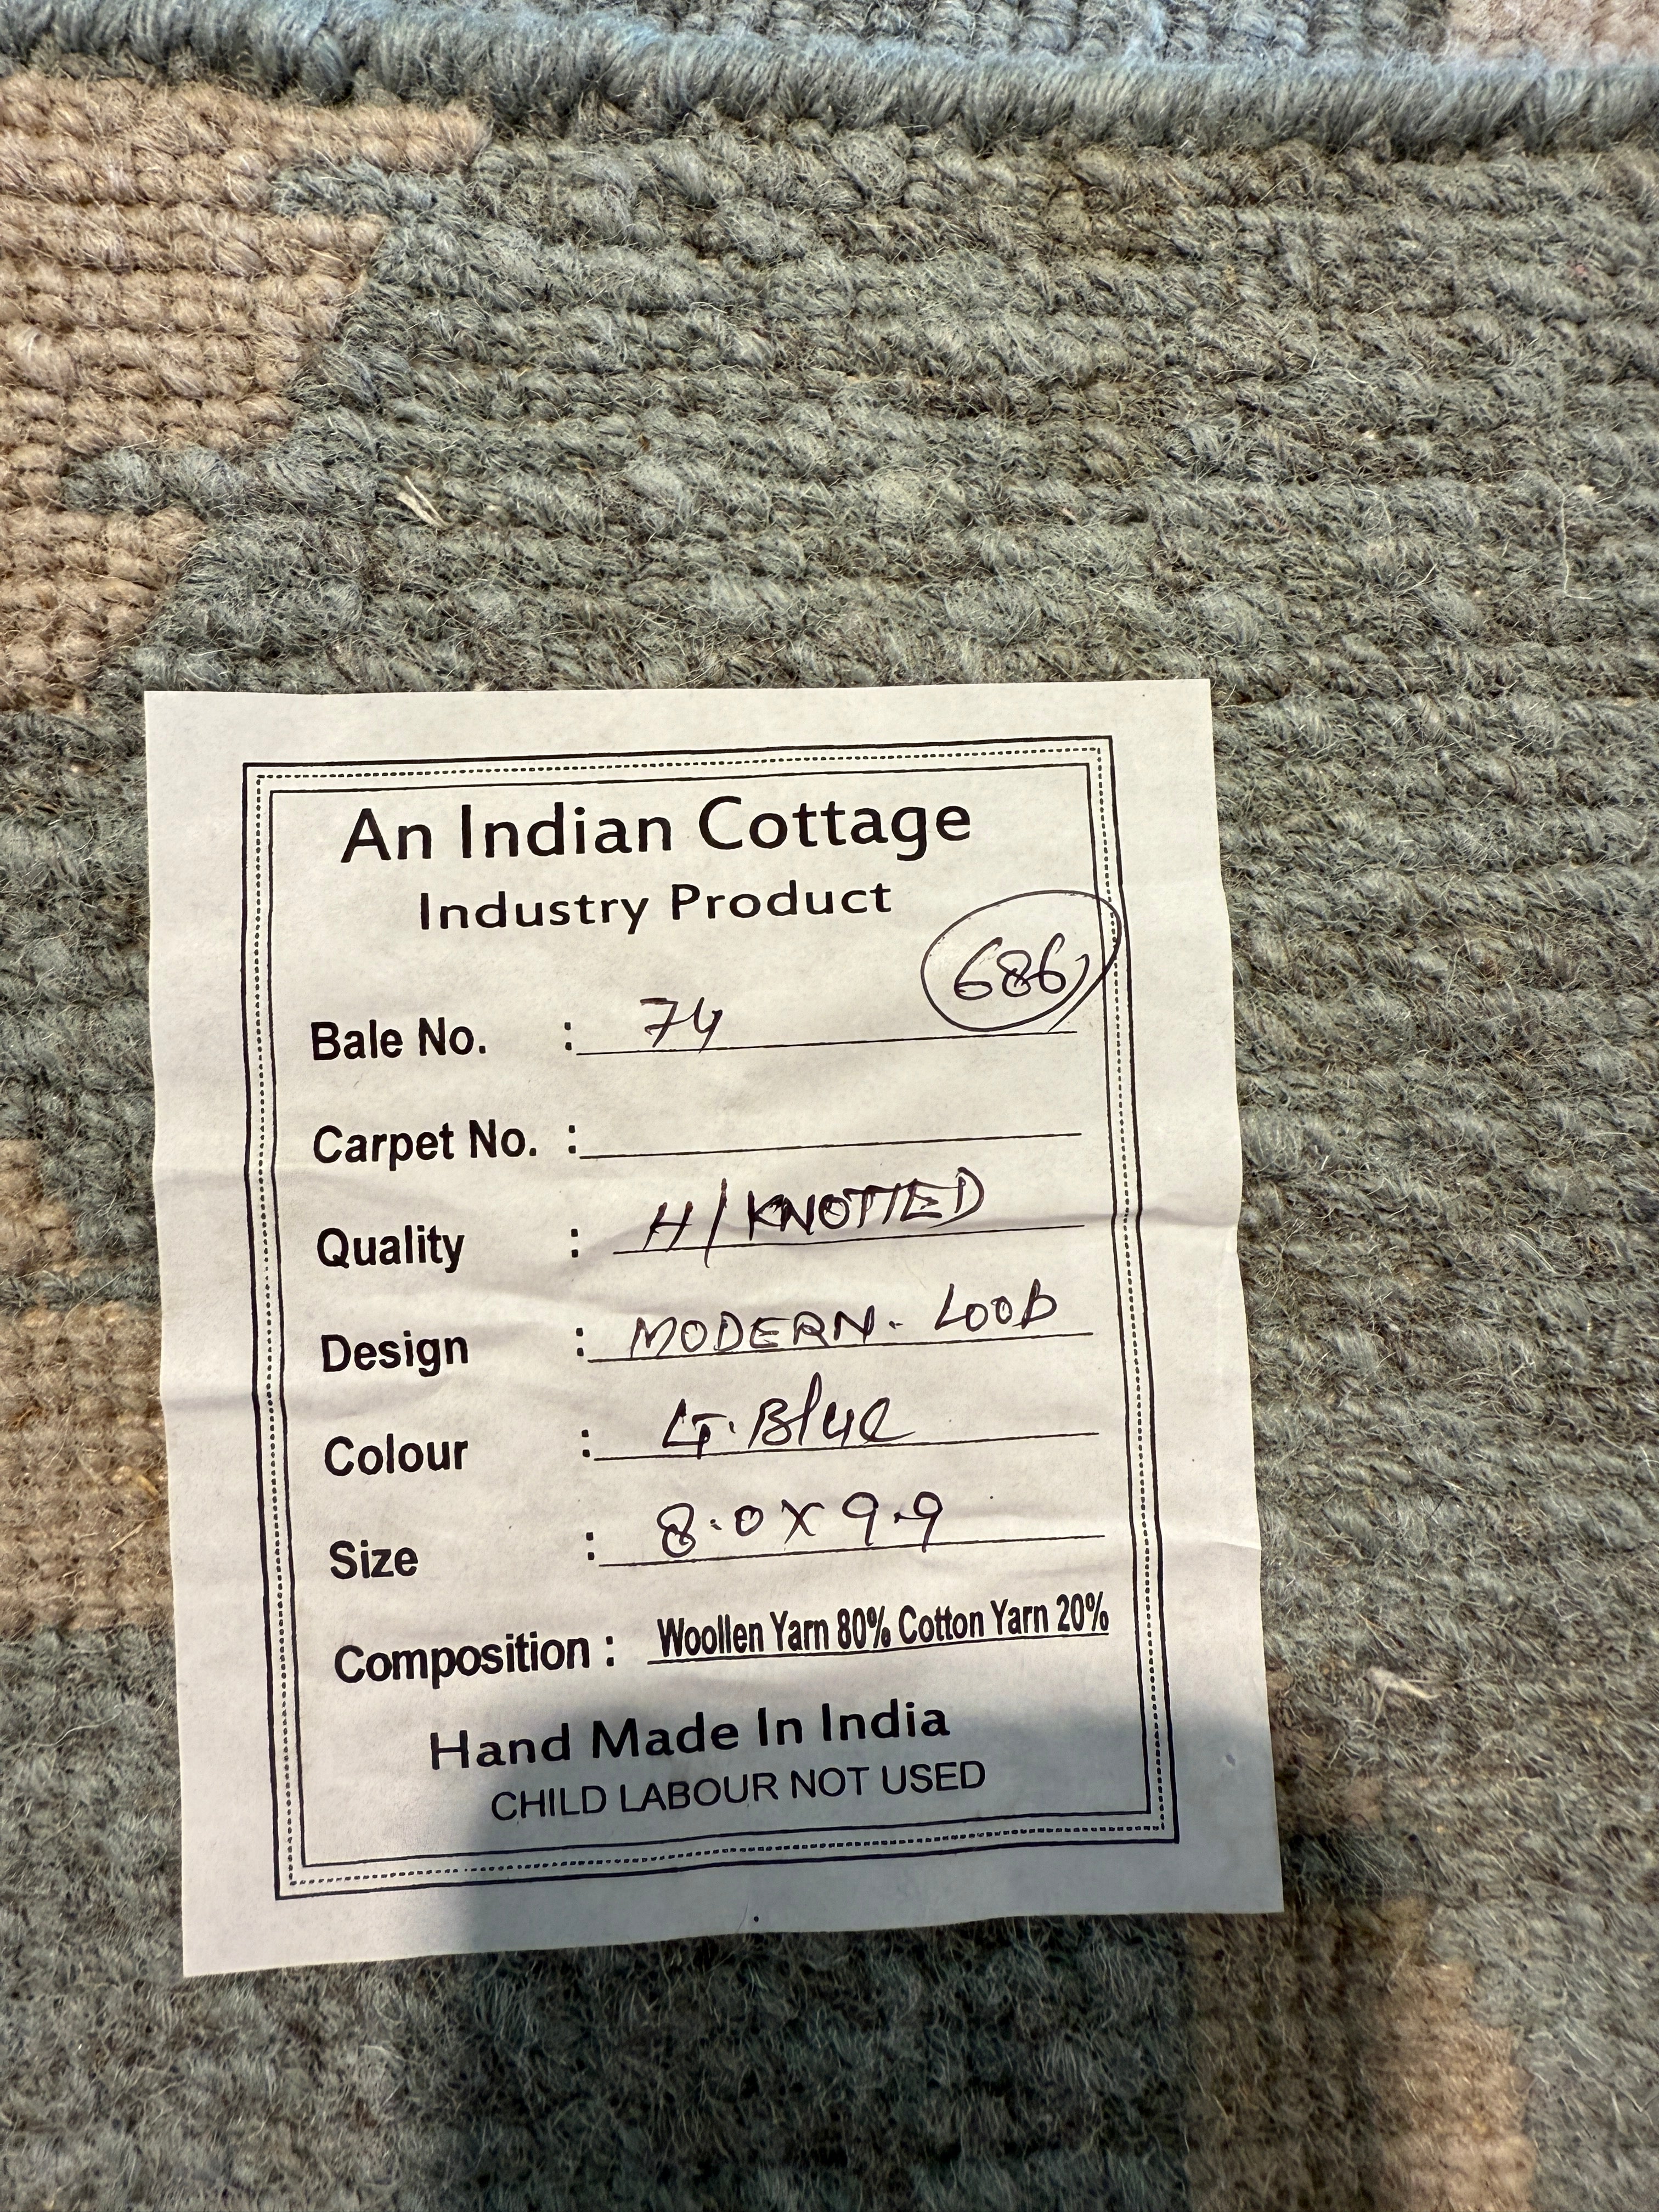 An Indian Cottage
Industry Product
686
Bale No. : 74
Carpet No. :
Quality : H/KNOTTED
Design : MODERN. LOOP
Colour : LT. Blue
Size : 8.0 X 9.9
Composition : Woollen Yarn 80% Cotton Yarn 20%
Hand Made In India
CHILD LABOUR NOT USED